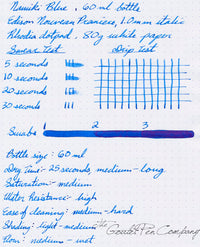 Namiki Blue, 60 ml bottle
Edison Nouveau Premiere, 1.0mm italic
Rhodia dotpad, 80g white paper
Smear Test Drip Test
5 seconds
10 seconds
20 seconds
30 seconds
Swabs 1 2 3
Bottle size: 60 ml
Dry Time: 25 seconds, medium-long
Saturation: medium
Water Resistance: high
Ease of cleaning: medium-hard
Shading: light-medium
Flow: medium-wet
The Goulet Pen Company